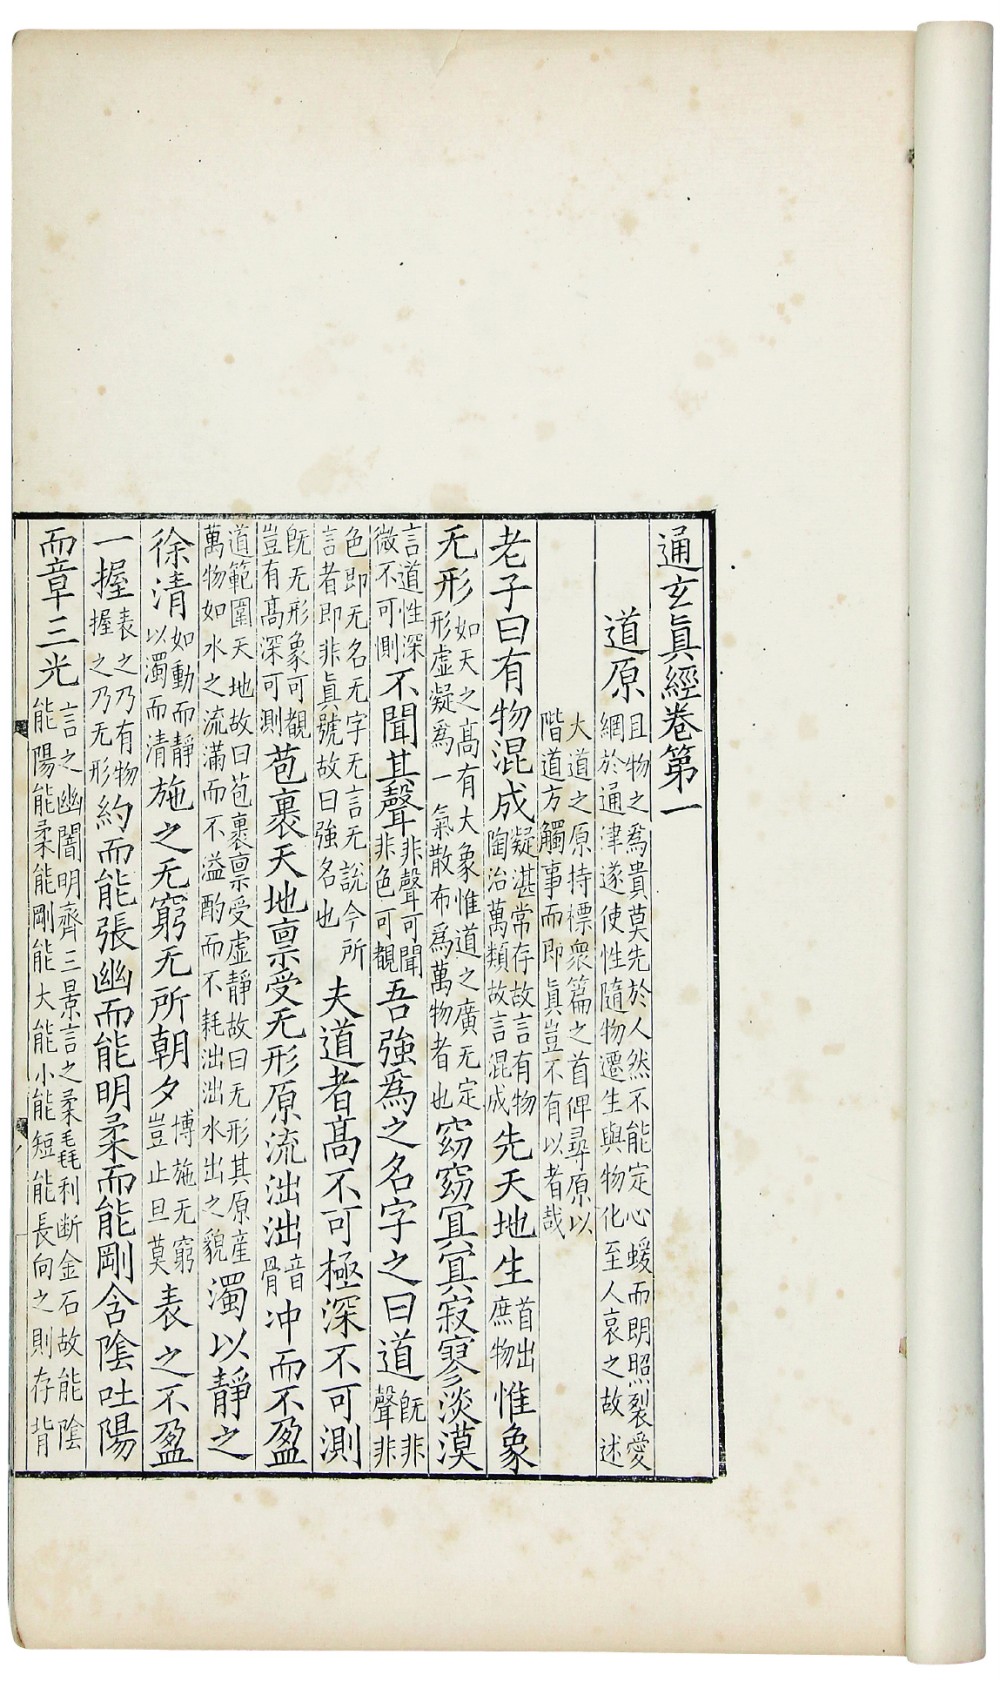 通玄眞經卷第一
道原且物之爲貴莫先於人然不能定心而朗照裂愛網於通津遂使性隨物遷生與物化至人哀之故述
大道之原持標衆篇之首俾尋原以階道方觸事而即眞豈不有以者哉
老子曰有物混成凝湛常存故言有物陶冶萬類故言混成先天地生首出庶物惟象
无形如天之高有大象惟道之廣无定形虛凝爲一氣散布爲萬物者也窈窈冥冥寂寥淡漠
言道性深微不可惻不聞其聲非聲可聞非色可覩吾強爲之名字之曰道旣非聲非
色即无名无字无言无說今所言者即非眞號故曰強名也夫道者高不可極深不可測
旣无形象可觀豈有高深可測苞裹天地禀受无形原流泏泏音骨冲而不盈
道範圍天地故曰苞裹禀受虛靜故曰无形其原產萬物如水之流滿而不溢酌而不耗泏泏水出之貌濁以靜之
徐清如動而靜以濁而清施之无窮无所朝夕博施无窮豈止旦莫表之不盈
一握表之乃有物握之乃无形約而能張幽而能明柔而能剛含陰吐陽
而章三光言之幽闇明齊三景言之柔毳利断金石故能陰能陽能柔能剛能大能小能短能長向之則存背